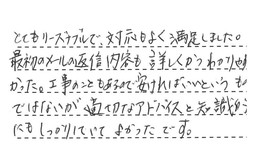 とてもリーズナブルで、対応もよく満足しました。
最初のメールの返信内容も詳しくかつわかりやす
かった。工事のこともあるので安ければいいというもの
ではないが適切なアドバイスと知識が
にもしっかりしていてよかったです。